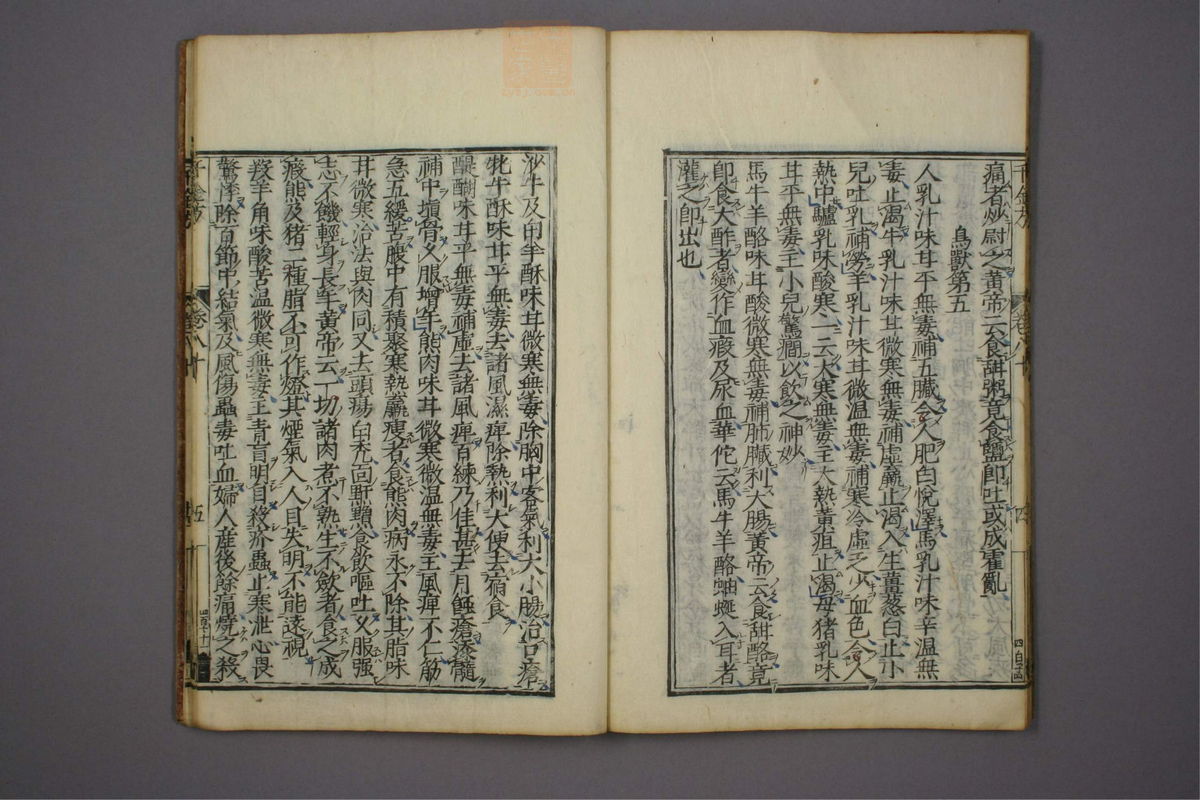 痛者炒尉之黄帝云食甜粥竟食鹽即吐或成霍亂
鳥獸第五
人乳汁味甘平無毒補五臟令人肥白悅澤馬乳汁味辛温無
毒止渴牛乳汁味甘微寒無毒補虛羸止渴入生薑葱白止小
兒吐乳補勞羊乳汁味甘微温無毒補寒冷虛乏少血色令人
熱中驢乳味酸寒一云大寒無毒主大熱黄疸止渴母猪乳味
甘平無毒主小兒驚癇以飲之神妙
馬牛羊酪味甘酸微寒無毒補肺臟利大腸黄帝云食甜酪竟
即食大酢者變作血瘕及尿血華佗云馬牛羊酪蚰蜒入耳者
灌之即出也
沙牛及白羊酥味甘微寒無毒除胸中客氣利大小腸治口瘡
牝牛酥味甘平無毒去諸風濕痺除熱利大便去宿食
醍醐味甘平無毒補虛去諸風痺百練乃佳甚去月蝕瘡添髓
補中塡骨久服增年熊肉味甘微寒微温無毒主風痺不仁筋
急五緩若腹中有積聚寒熱羸瘦者食熊肉病永不除其脂味
甘微寒治法與肉同又去頭瘍白禿面䵟䵳食飲嘔吐久服强
志不饑輕身長年黄帝云一切諸肉煮不熟生不斂者食之成
瘕熊及猪二種脂不可作燈其煙氣入人目失明不能遠視
羖羊角味酸苦温微寒無毒主青盲明目殺疥蟲止寒泄心畏
驚悸除百節中結氣及風傷蠱毒吐血婦人産後餘痛燒之殺